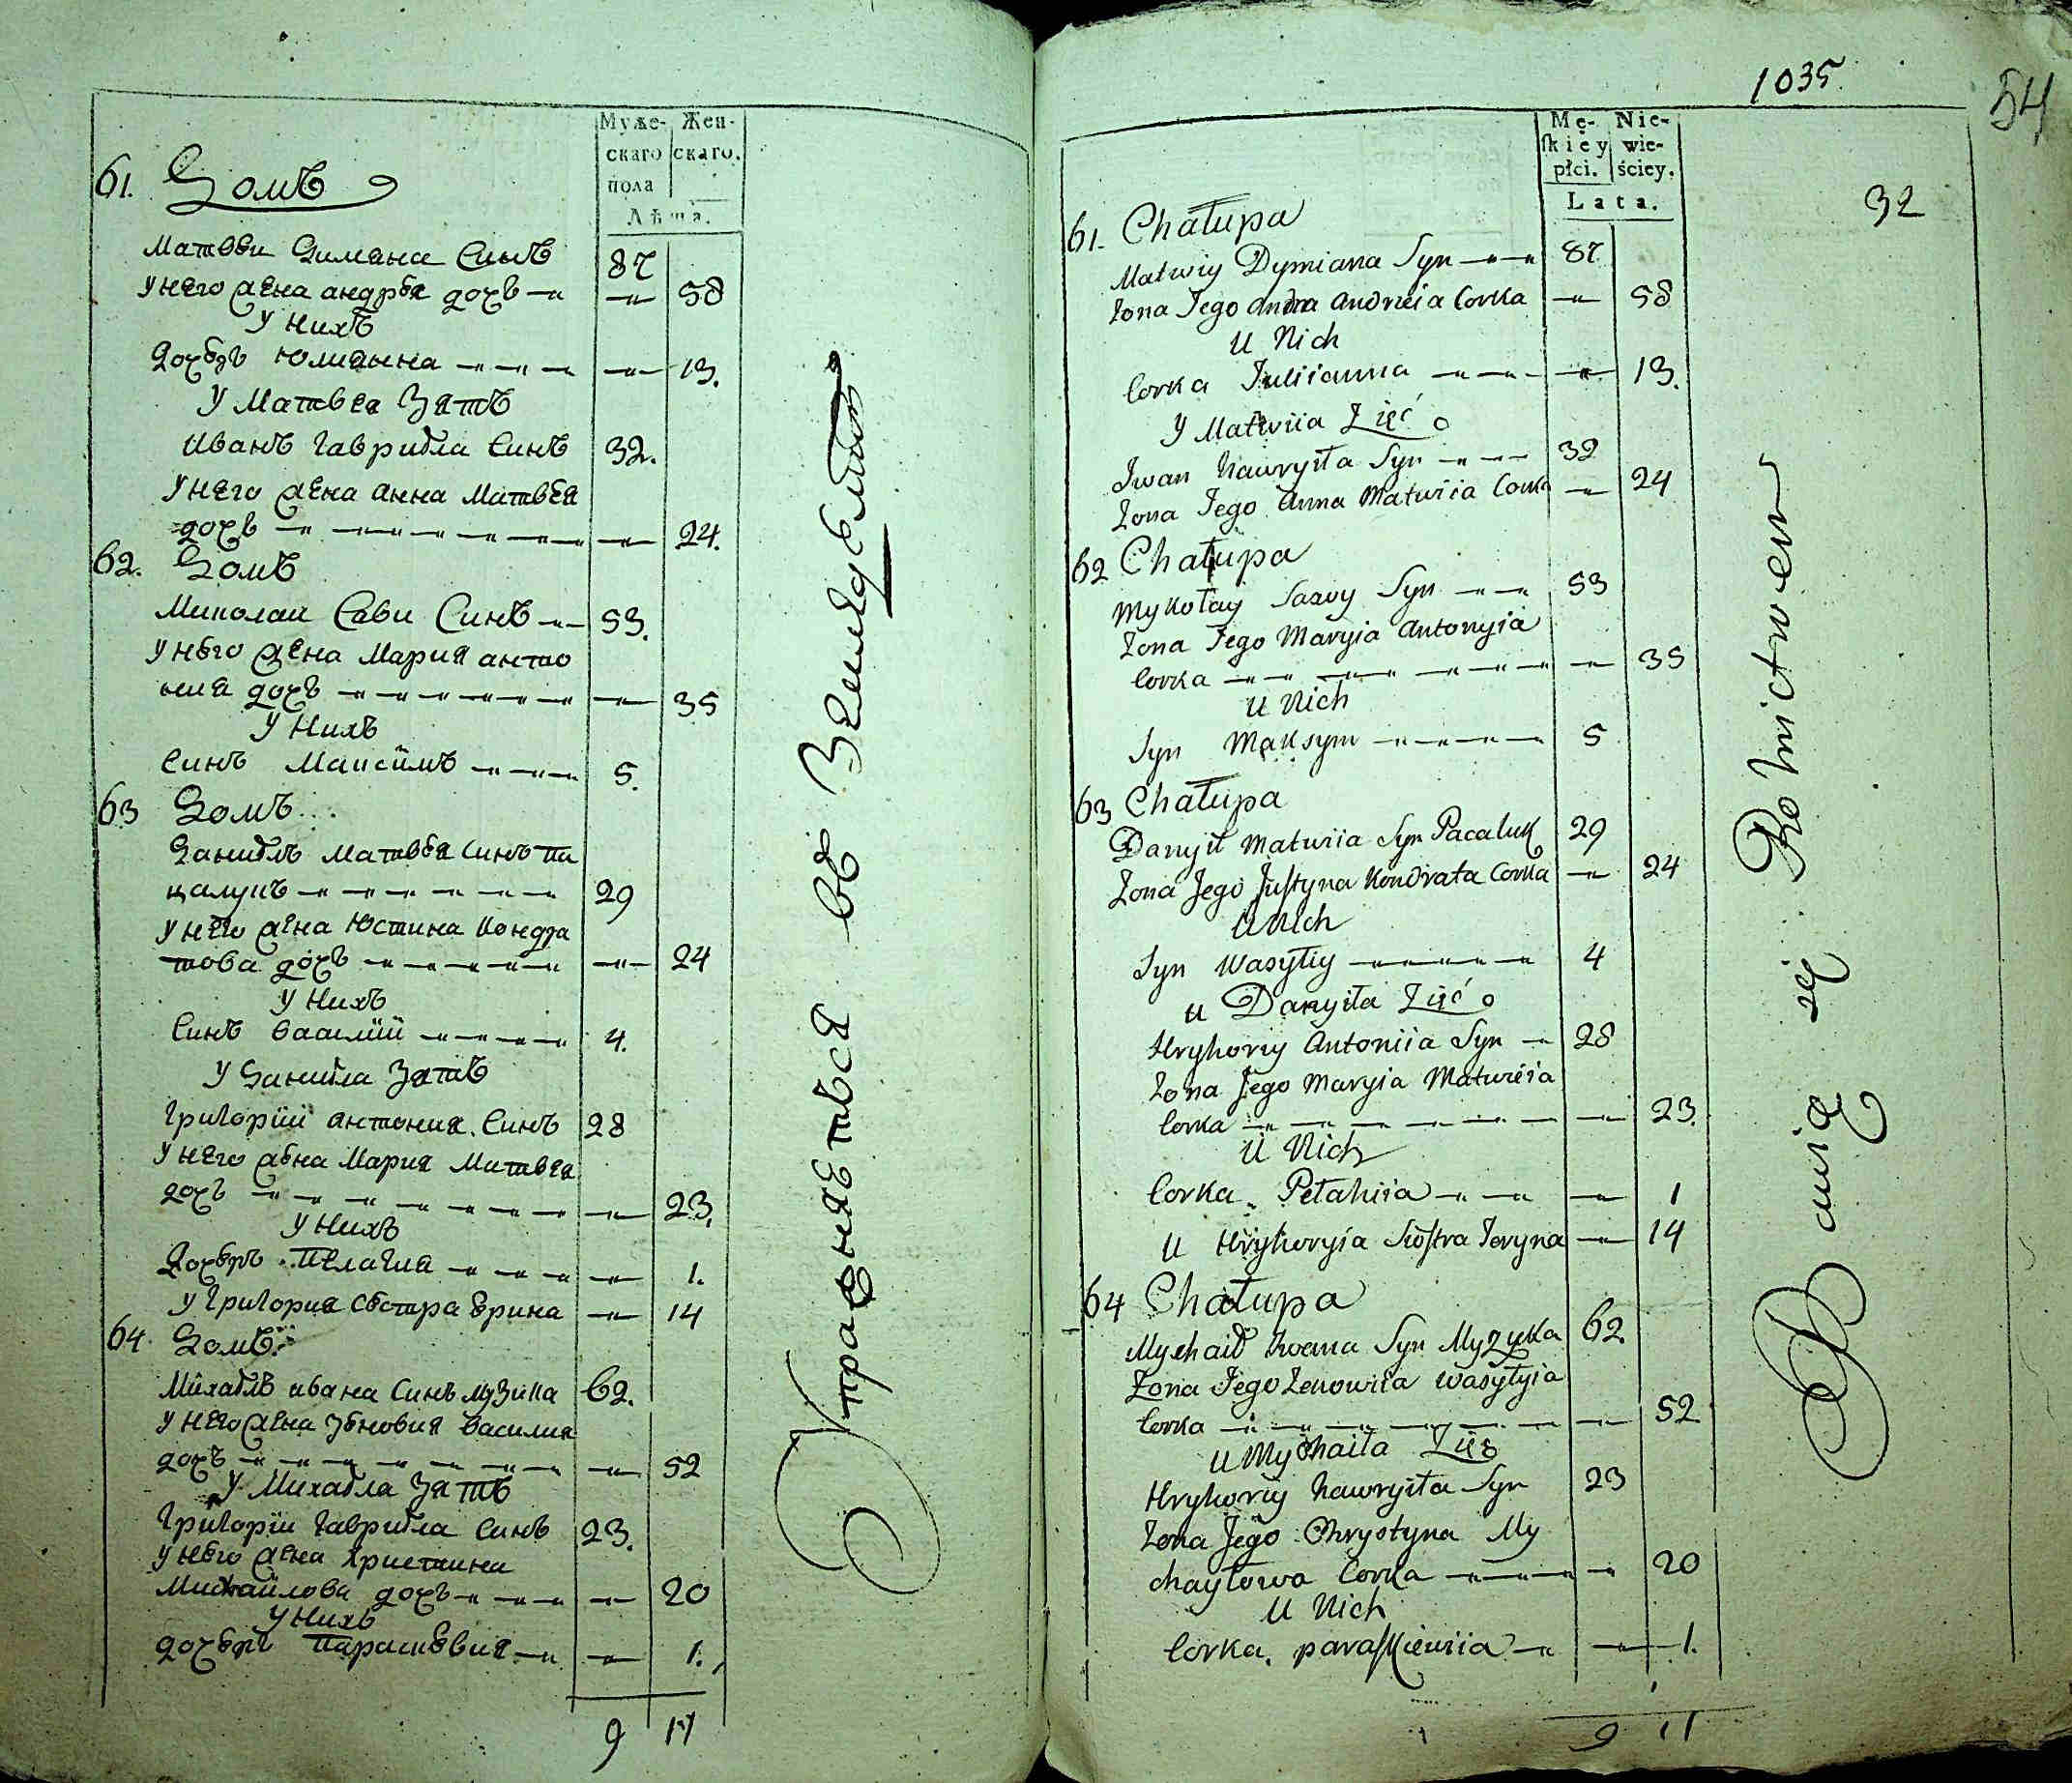 Муже- Жен-
скаго скаго.
пола
Лѣта.
61. Домъ
Матвѣи Димяна Синъ 87
У него жена андрѣя дочь 58
У Нихъ
Дочѣръ Юлиянна 13.
У Матвѣя Зятъ
Иванъ Гаврибла Синъ 32.
У него жена анна Матвѣя
дочь 24.
62. Домъ
Миколаи Сави Синъ 53.
У него жена Мария анто
ния дочь 35
У Нихъ
Синъ Максимъ 5.
63 Домъ
Данибль Матвѣя Синъ па
цалукъ 29
У него жена Юстина Кондра
това дочь 24
У Нихъ
Синъ Василий 4.
У Данибла Зятъ
Григорий антония Синъ 28
У него жена Мария Матвѣя
дочь 23.
У Нихъ
Дочѣръ пелагия 1.
У Григория Сѣстра Ѣрина 14
64. Домъ
Михаблъ ивана Синъ музика 62.
У него жена Зѣновия Василия
дочь 52
У Михабла Зятъ
Григорий Гаврибла Синъ 23.
У него жена христина
Михайлова дочь 20
У Нихъ
дочѣръ парасковия 1.
9 11
Упражняется въ Земледѣлiи
1035.
54
32
Mę- Nie-
ſkiey wie-
płci. ściey.
Lata.
61. Chałupa
Matwiy Dymiana Syn 87
Zona Jego Andreia Corka 58
U Nich
Corka Juliianna 13.
Y Matwiia Zięć
Iwan Hawryła Syn 32
Zona Jego Anna Matwiia Corka 24
62 Chałupa
Mykołay Sawy Syn 53
Zona Jego Maryia Antonyia
Corka 35
U Nich
Syn Maksym 5
63 Chałupa
Danyił Matwiia Syn Pacaluk 29
Zona Jego Juſtyna Kondrata Corka 24
U Nich
Syn Wasyłiy 4
U Danyiła Zięć
Hryhoriy Antoniia Syn 28
Zona Jego Maryia Matwiia
Corka 23.
U Nich
Corka Pełahiia 1
U Hryhoryia Sioſtra Jeryna 14
64 Chałupa
Mychaił Iwana Syn Myzyka 62.
Zona Jego Zenowiia Wasyłyia
Corka 52
U Mychaiła Zięć
Hryhoriy Hawryiła Syn 23
Zona Jego Chrystyna My
chayłowa Corka 20
U Nich
Corka paraſkiewiia 1.
9 11
Bawią się Rolnictwem